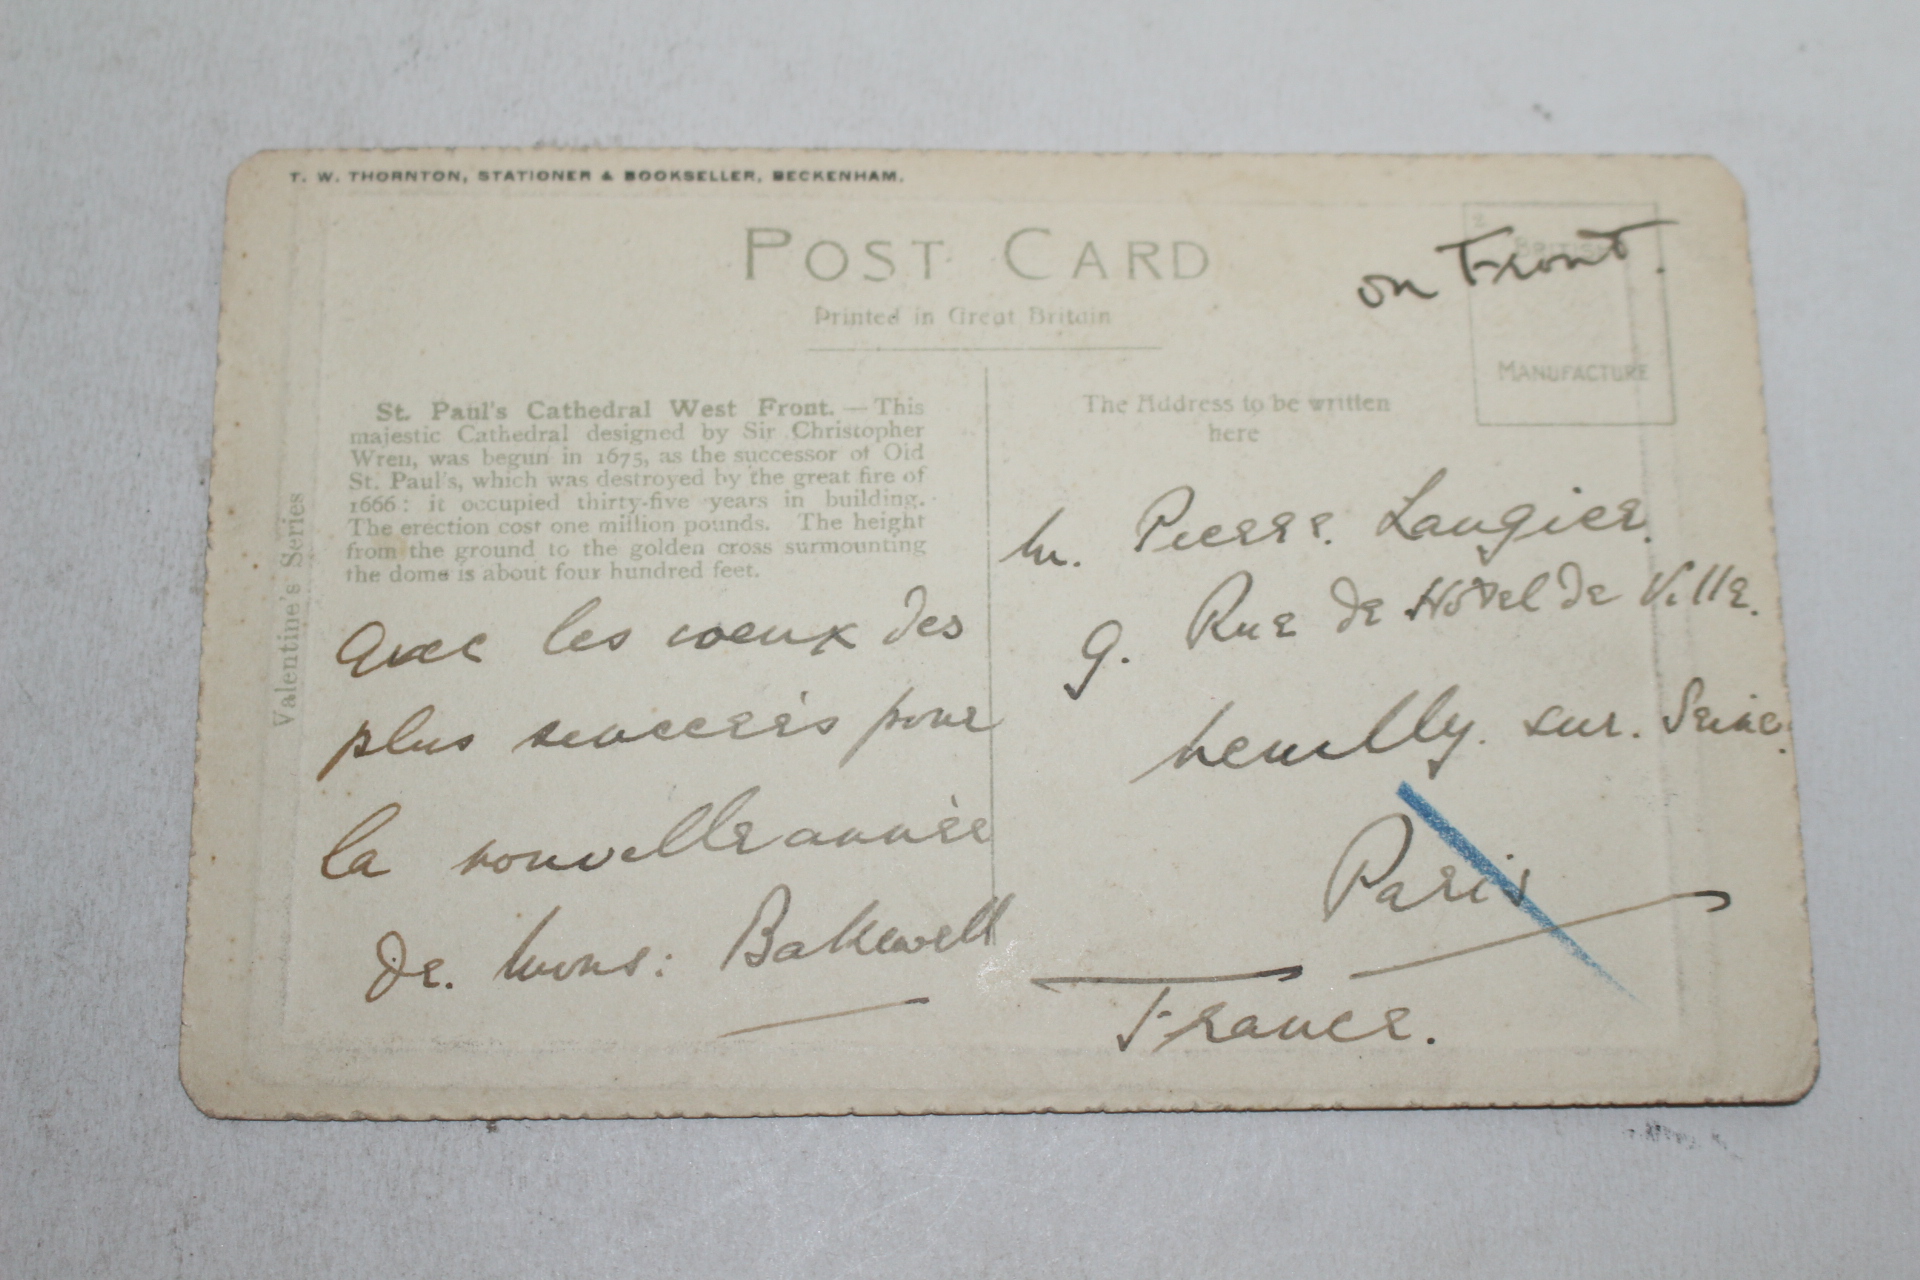 T. W. THORNTON, STATIONER & BOOKSELLER, BECKENHAM.
POST CARD
Printed in Great Britain
on Front.
BRITISH
MANUFACTURE
Valentine's Series
St. Paul's Cathedral West Front. — This
majestic Cathedral designed by Sir Christopher
Wren, was begun in 1675, as the successor of Old
St. Paul's, which was destroyed by the great fire of
1666: it occupied thirty-five years in building.
The erection cost one million pounds. The height
from the ground to the golden cross surmounting
the dome is about four hundred feet.
Avec les voeux des
plus sincères pour
la nouvelle année
de. Mons: Bakewell
The Address to be written
here
M. Pierre. Laugier.
9. Rue de Hôtel de Ville.
Neuilly. sur. Seine.
Paris
France.